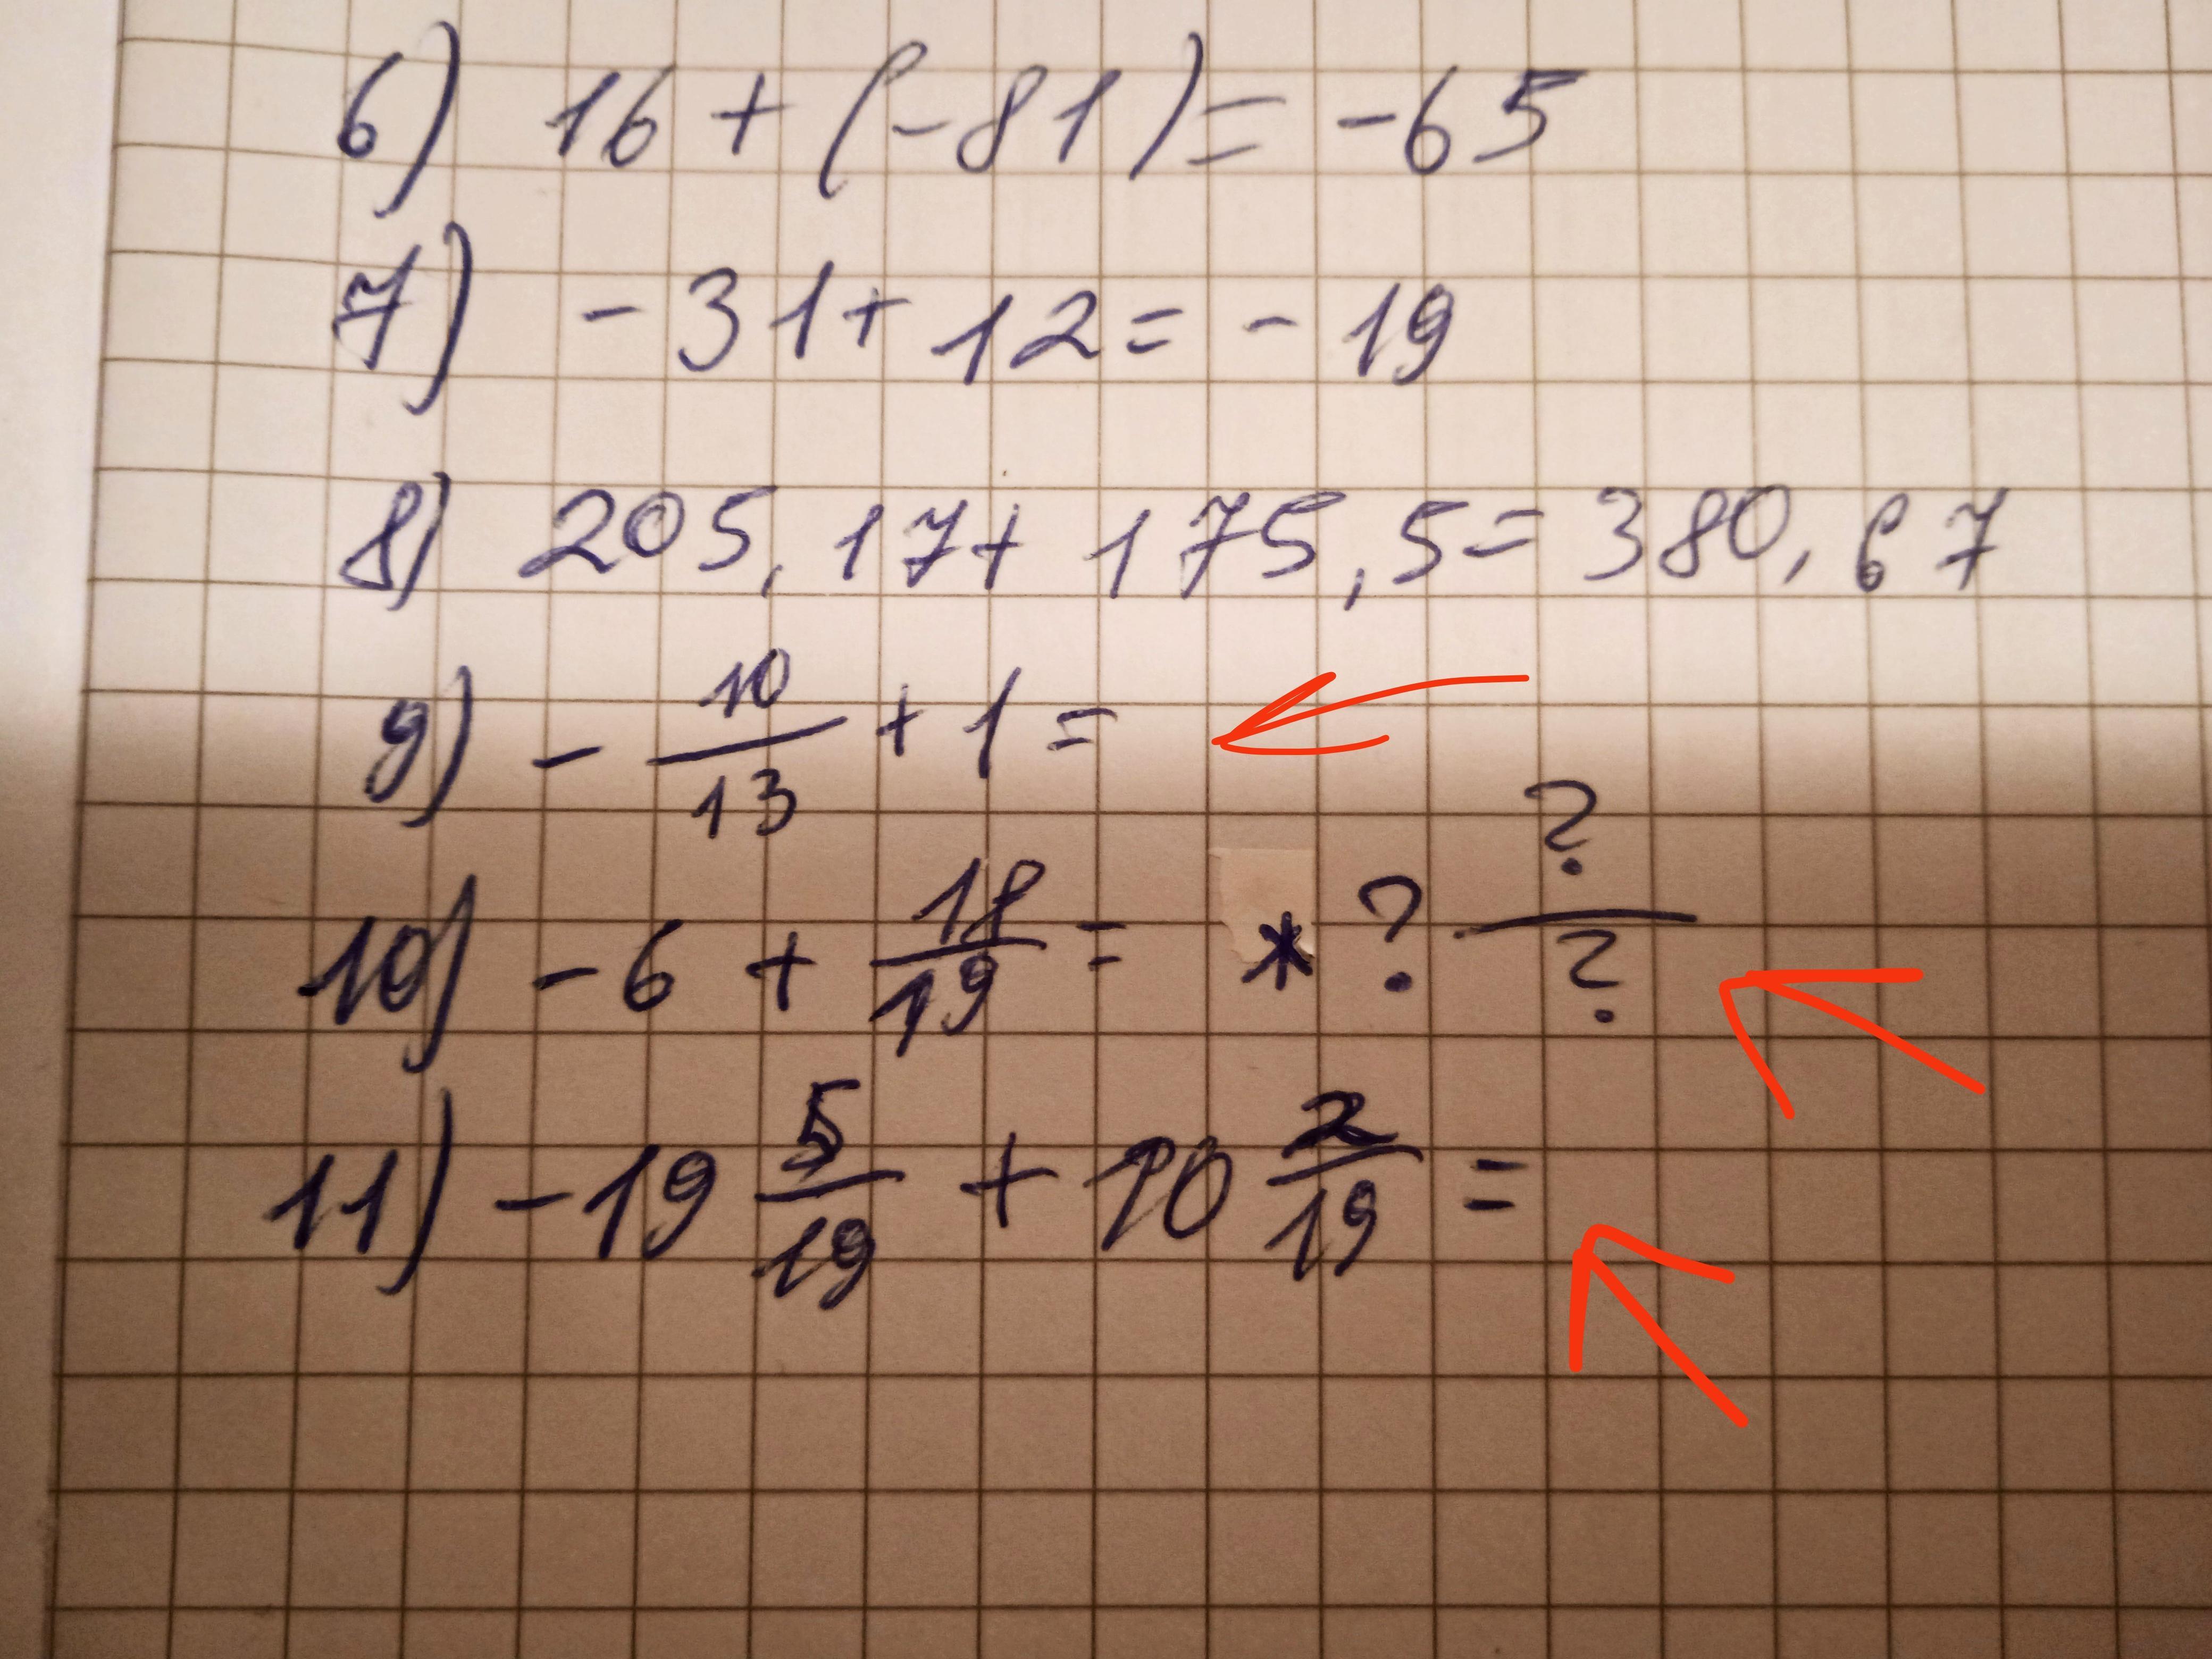 6) 16 + (-81) = -65
7) -31 + 12 = -19
8) 205,17 + 175,5 = 380,67
9) - 10/13 + 1 =
10) -6 + 18/19 = * ? ?/?
11) -19 5/19 + 10 2/19 =